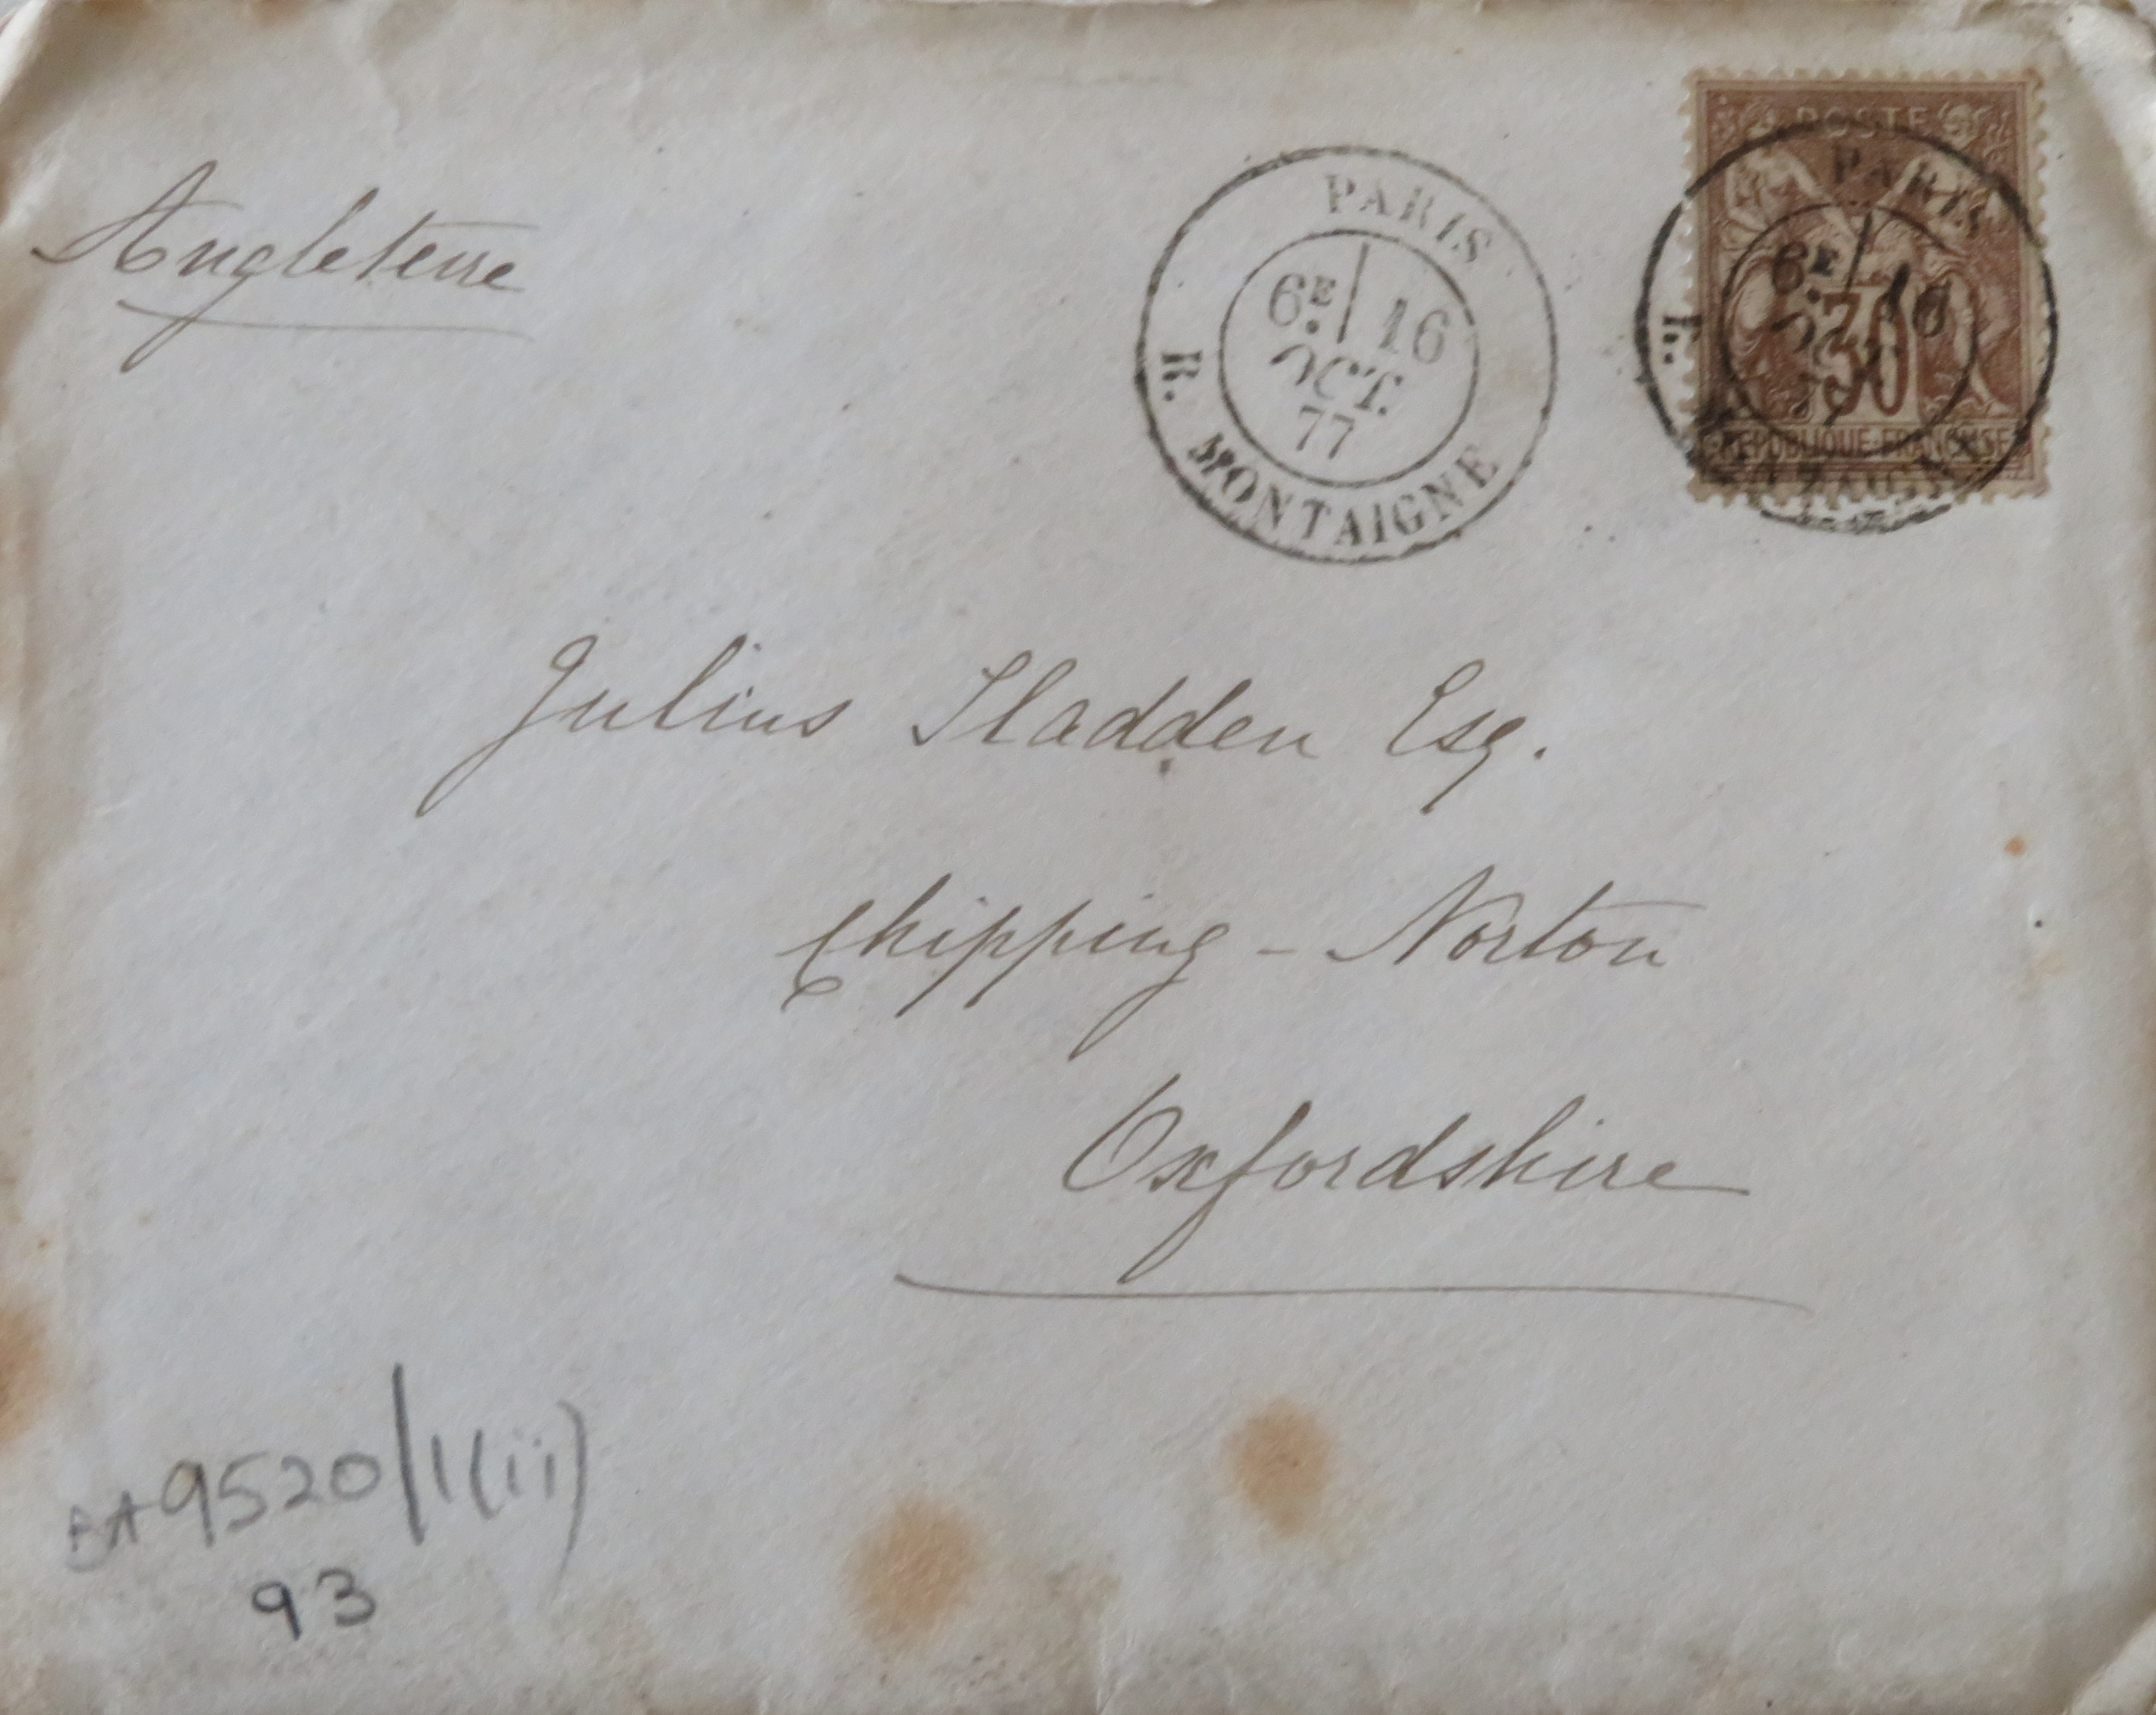 Angleterre
PARIS
6E 16
OCT.
77
R. MONTAIGNE
POSTE
PARIS
6E 16
30
77
R.
REPUBLIQUE FRANCAISE
Julius Sladden Esq.
Chipping - Norton
Oxfordshire
EA9520/1(ii)
93